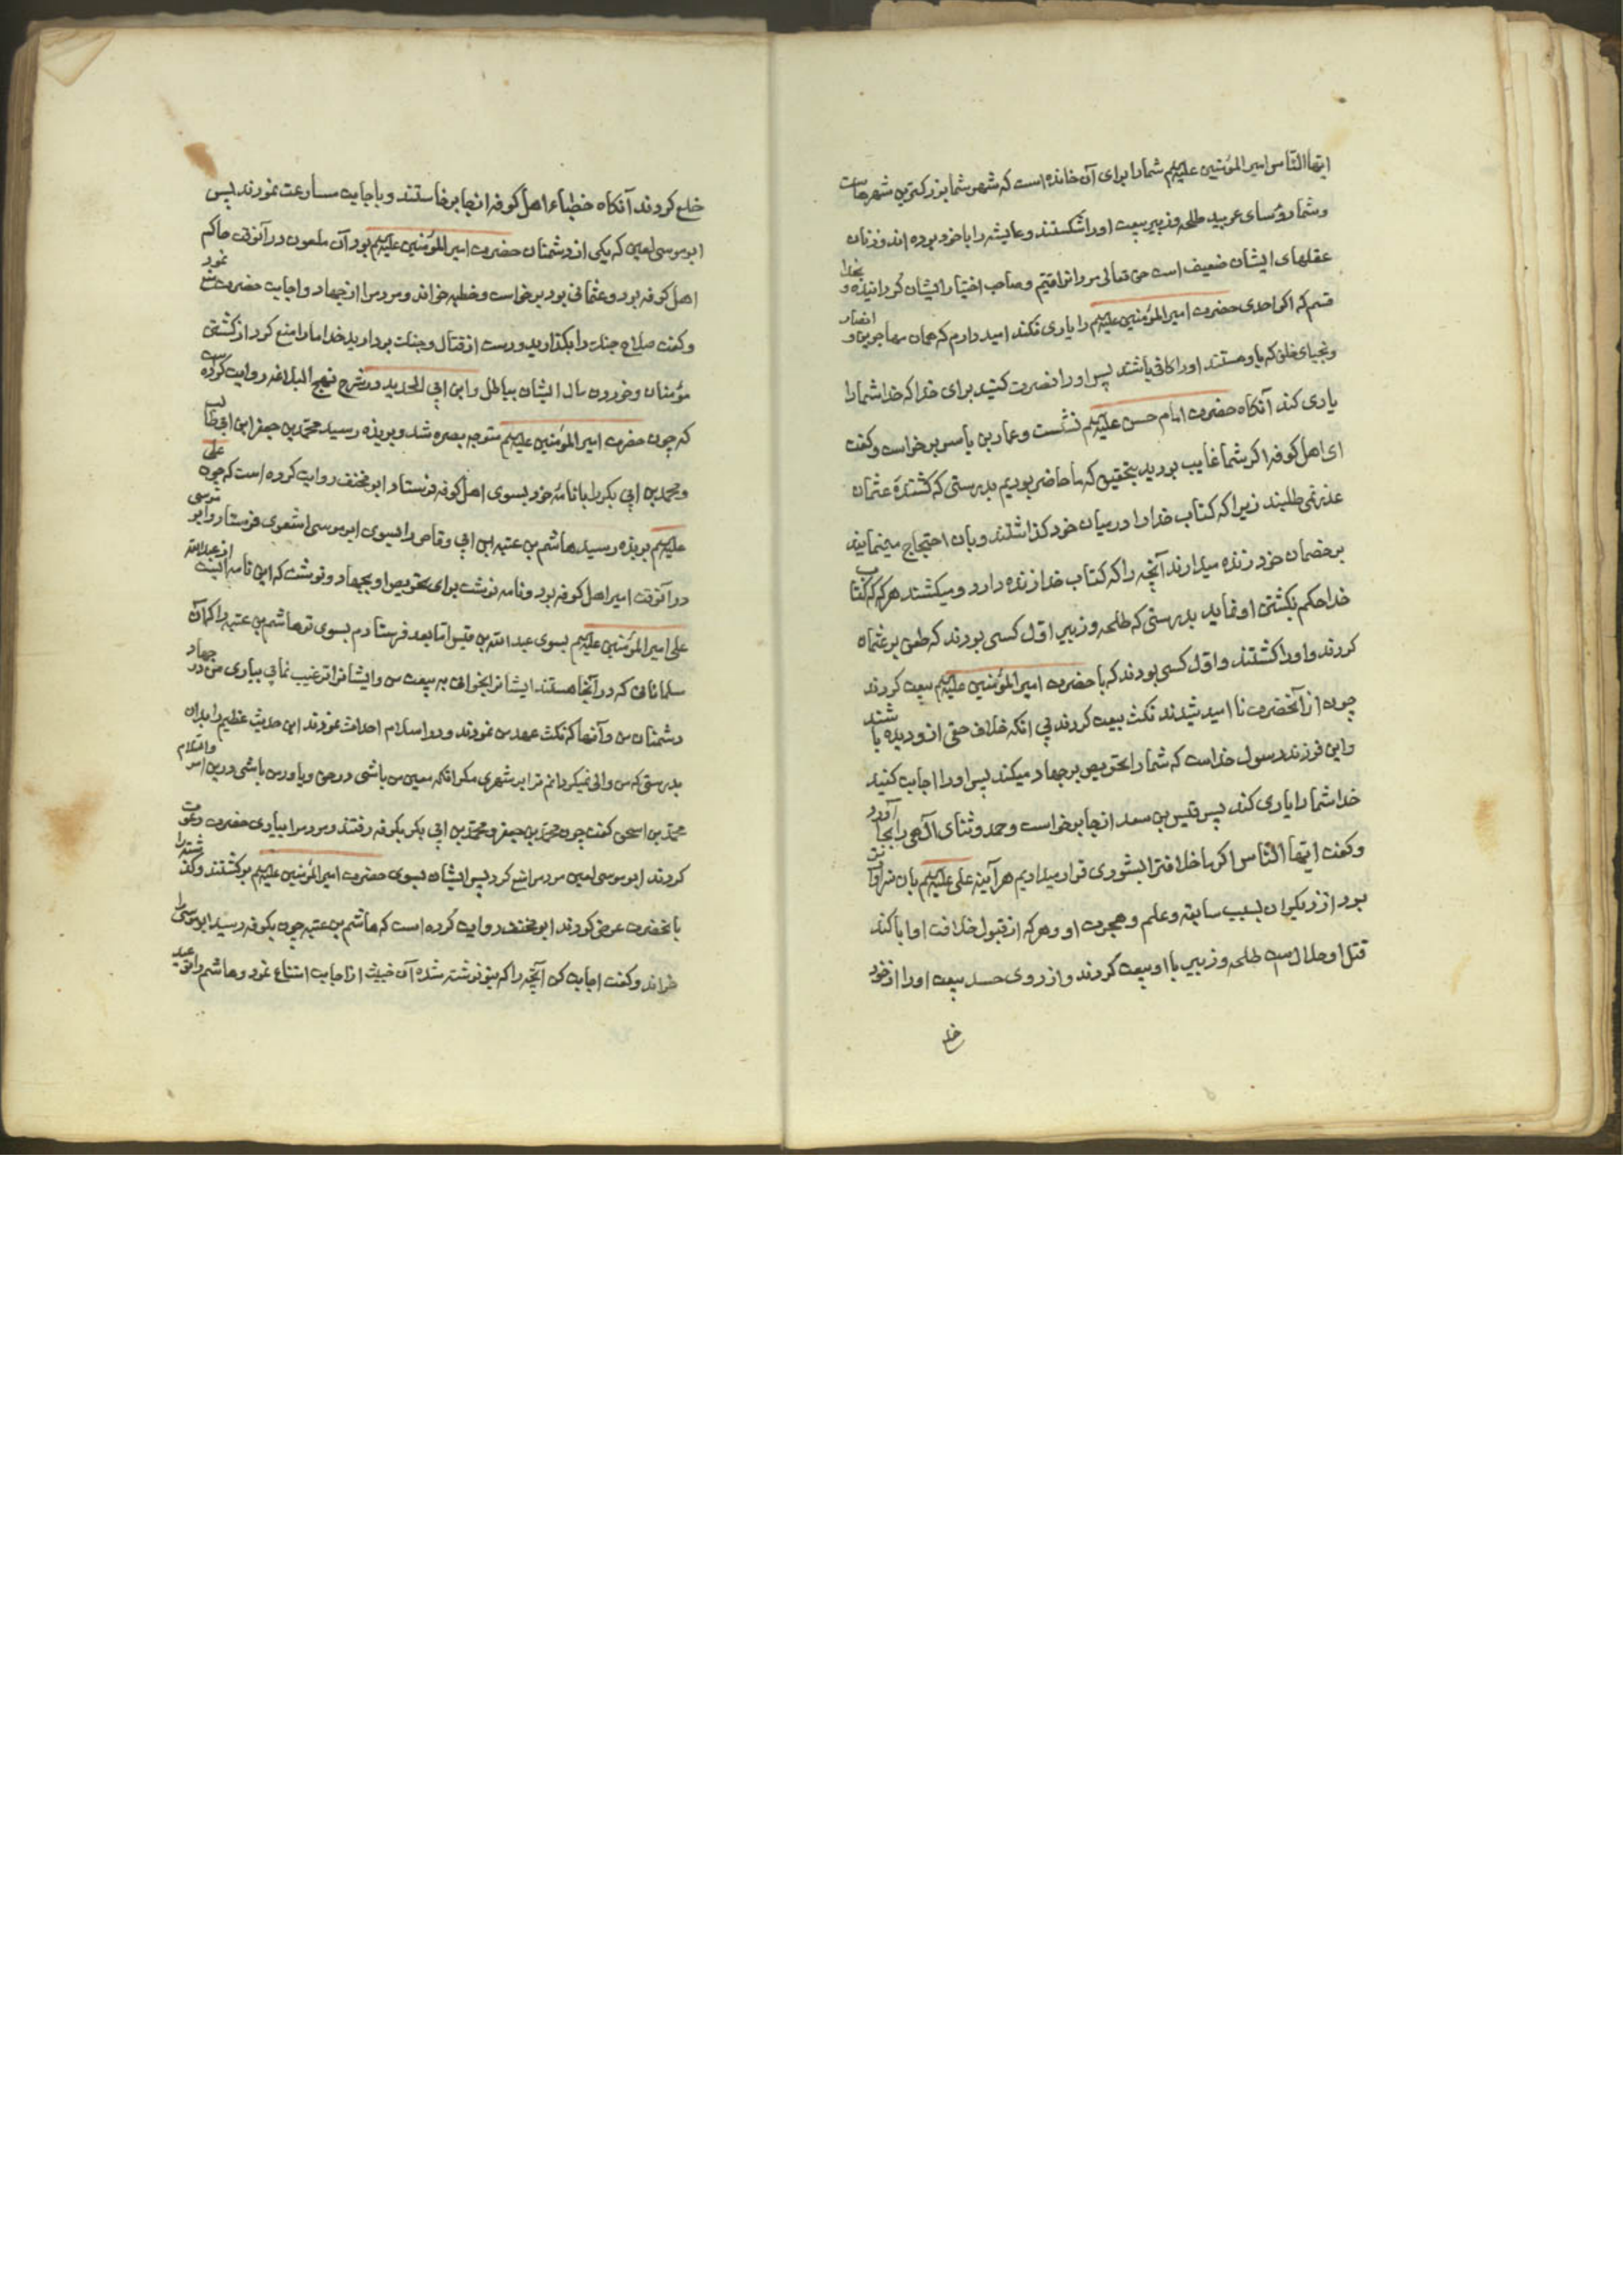 ایها الناس امیر المؤمنین علیه‌السلم شما را برای آن خوانده است که شهر شما بزرکترین شهرهاست
و شما رؤسای عربید طلحه و زبیر بیعت او را شکستند و عایشه را با خود برده‌اند و زنان
عقلهای ایشان ضعیف است حق تعالی مردانرا قیّم و صاحب اختیار ایشان کردانیده و بخدا
قسم که اکر احدی حضرت امیر المؤمنین علیه‌السلم را یاری نکند امید دارم که همان مهاجرین و انصار
و نجبای خلق که با او هستند او را کافی باشند پس او را نصرت کنید برای خدا که خدا شما را
یاری کند آنکاه حضرت امام حسن علیه‌السلم نشست و عمار بن یاسر برخواست و کفت
ای اهل کوفه اکر شما غایب بودید بتحقیق که ما حاضر بودیم بدرستی که کشندهٔ عثمان
عذر نمی طلبند زیرا که کتاب خدا را در میان خود کذاشتند و بان احتجاج مینمایند
بر خصمان خود زنده میدارند آنچه را که کتاب خدا زنده دارد و میکشند هر که که کتاب
خدا حکم بکشتن او نماید بدرستی که طلحه و زبیر اوّل کسی بودند که طعن بر عثمان
کردند و او را کشتند و اوّل کسی بودند که با حضرت امیر المؤمنین علیه‌السلم بیعت کردند
چون از آنحضرت نا امید شدند نکث بیعت کردند بی انکه خلاف حقی از و دیده باشند
و این فرزند رسول خداست که شما را تحریص بر جهاد میکند پس او را اجابت کنید
خدا شما را یاری کند پس قیس بن سعد از جا برخواست و حمد و ثنای آلهی را بجا آورد
و کفت ایها الناس اکر ما خلافترا بشوری قرار میدادیم هر آینه علی علیه‌السلم بان سزاوارتر
بود از دیکران بسبب سابقه و علم و هجرت او و هر که از قبول خلافت او ابا کند
قتل او حلال است طلحه و زبیر با او بیعت کردند و از روی حسد بیعت او را از خود
خلع
خلع کردند آنکاه خطباء اهل کوفه از جا برخاستند و باجابت مسارعت نمودند پس
ابو موسی لعین که یکی از دشمنان حضرت امیر المؤمنین علیه‌السلم بود آن ملعون در آنوقت حاکم
اهل کوفه بود و عثمانی بود برخواست و خطبه خواند و مردم را از جهاد و اجابت حضرت منع نمود
و کفت صلاح جنک را بکذارید و دست از قتال و جنک بردارید خدا ما را منع کرد از کشتن
مؤمنان و خوردن مال ایشان بباطل و ابن ابی الحدید در شرح نهج البلاغه روایت کرده است
که چون حضرت امیر المؤمنین علیه‌السلم متوجه بصره شد و بربذه رسید محمد بن جعفر ابن ابی طالب
و محمد بن ابی بکر را با نامهٔ خود بسوی اهل کوفه فرستاد ابو مخنف روایت کرده است که چون علی
علیه‌السلم بربذه رسید هاشم بن عتبه ابن ابی وقاص را بسوی ابو موسی اشعری فرستاد و ابو موسی
در آنوقت امیر اهل کوفه بود و نامه نوشت برای تحریص او بجهاد و نوشت که این نامه ایست از عبدالله
علی امیر المؤمنین علیه‌السلم بسوی عبد الله بن قیس اما بعد فرستادم بسوی تو هاشم بن عتبه را که آن
مسلمانانی که در آنجا هستند ایشانرا بخوانی به بیعت من و ایشانرا ترغیب نمائی بیاری من در جهاد
دشمنان من و آنها که نکث عهد من نمودند و در اسلام احداث نمودند این حدیث عظیم را بدان
بدرستی که من والی نمیکردانم ترا بر شهری مکر انکه معین من باشی در حق و یاور من باشی درین امر والسلام
محمد بن اسحق کفت چون محمد بن جعفر و محمد بن ابی بکر بکوفه رفتند و مردم را بیاری حضرت دعوت
کردند ابو موسی لعین مردم را منع کرد پس ایشان بسوی حضرت امیر المؤمنین علیه‌السلم برکشتند و کذشته را
بانحضرت عرض کردند ابو مخنف روایت کرده است که هاشم بن عتبه چون بکوفه رسید ابو موسی را
خواند و کفت اجابت کن آنچه را که بتو نوشته شده آن خبیث از اجابت امتناع نمود و هاشم را توعید